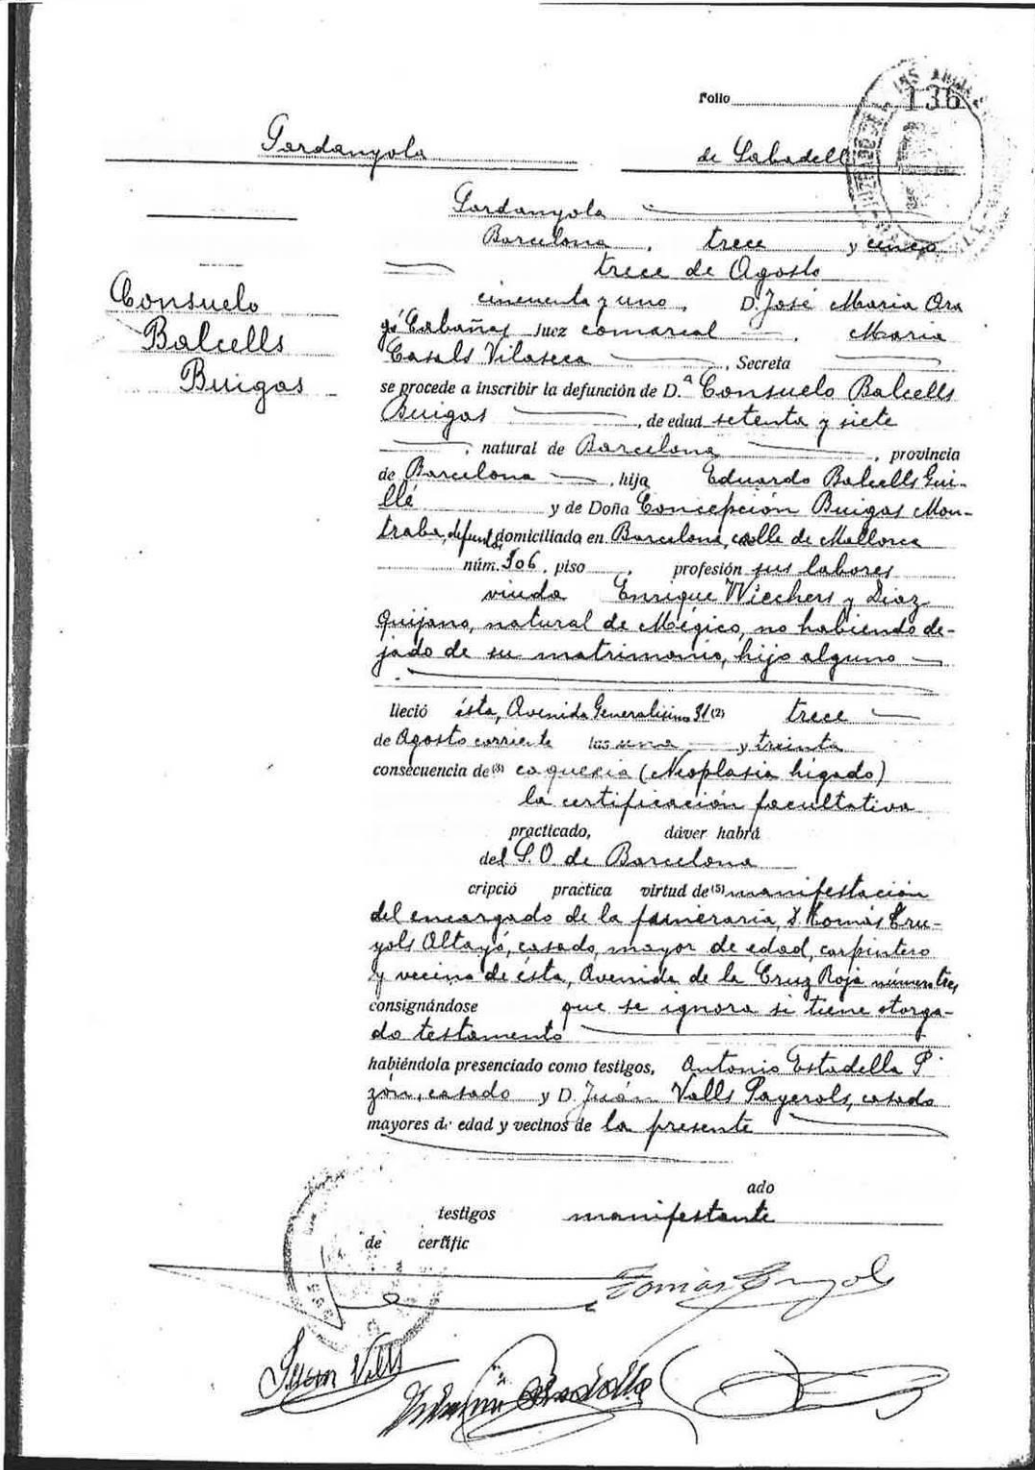 Folio 136
Sardanyola de Sabadell
Sardanyola
Barcelona, trece y cinco
trece de Agosto
Consuelo
Balcells
Buigas
cincuenta y uno, D. José Maria Ora
gó Cabañas Juez comarcal Maria
Casals Vilaseca, Secreta
se procede a inscribir la defunción de D.ª Consuelo Balcells
Buigas, de edad setenta y siete
, natural de Barcelona, provincia
de Barcelona, hija Eduardo Balcells Gui-
llé y de Doña Concepción Buigas Mon-
traba, domiciliada en Barcelona, calle de Mallorca
núm. 306, piso , profesión sus labores
viuda Enrique Wiechers y Diaz
Quijano, natural de Mégico, no habiendo de-
jado de su matrimonio, hijo alguno
lleció ésta, Avenida Generalisimo 31 (2) trece
de Agosto corriente las una y treinta
consecuencia de (3) caquexia (Neoplasia higado)
la certificación facultativa
practicado, dáver habrá
del S.O. de Barcelona
cripció practica virtud de (5) manifestación
del encargado de la funeraria, D. Tomás Cru-
yols Altayó, casado, mayor de edad, carpintero
y vecino de ésta, Avenida de la Cruz Roja número tres,
consignándose que se ignora si tiene otorga-
do testamento
habiéndola presenciado como testigos, Antonio Estadella P
zón, casado y D. Juán Valls Payerols, casado
mayores de edad y vecinos de la presente
ado
testigos manifestante
de certific
Tomás Cruyols
Juan Valls